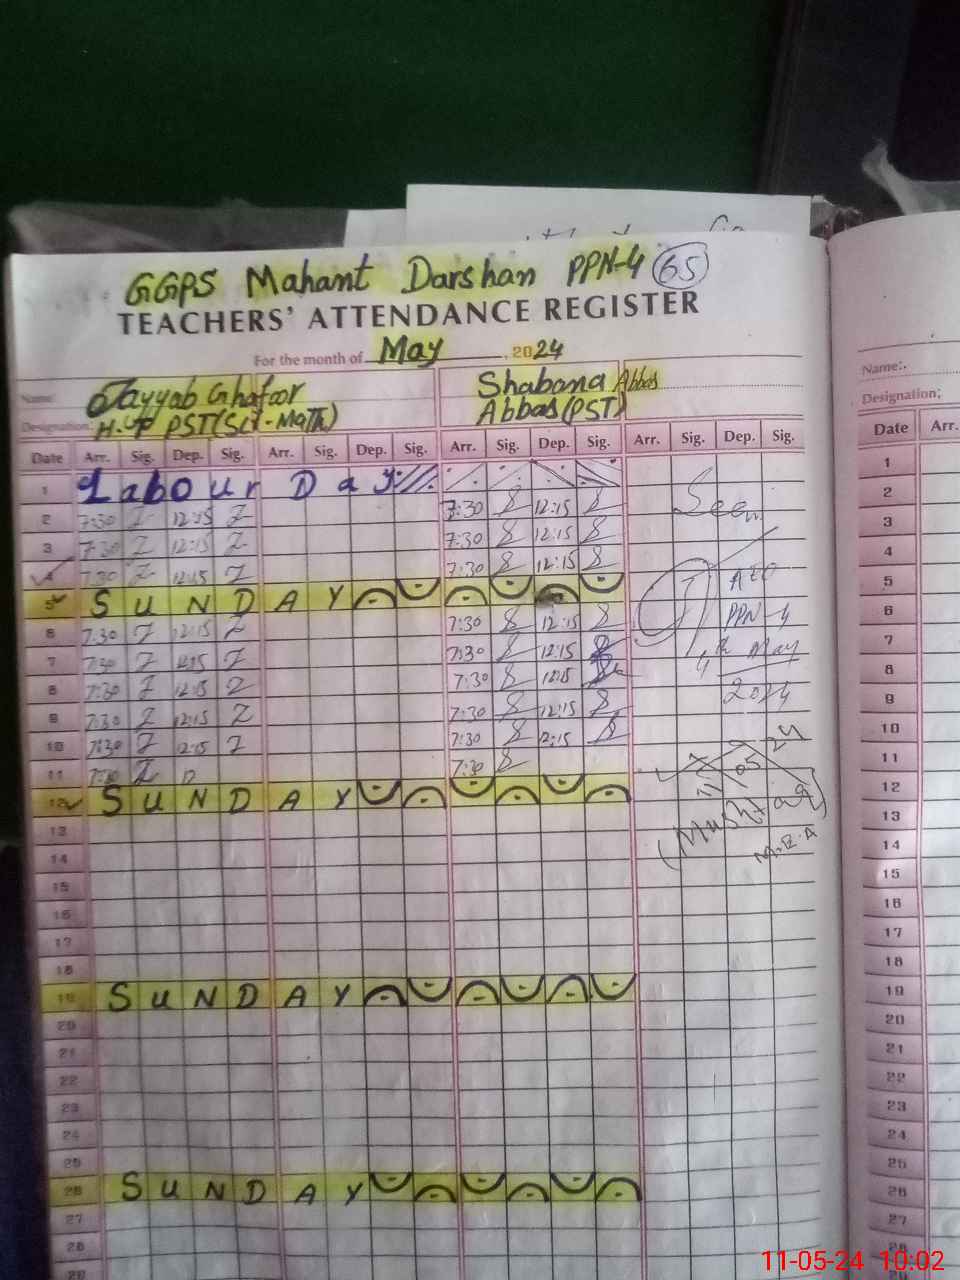 GGPS Mahant Darshan PPN-4 65
TEACHERS' ATTENDANCE REGISTER
For the month of May, 2024
Name: Tayyab Ghafoor Shabana Abbas
Designation: H.T PST(Sci-Math) Abbas(PST)
Date Arr. Sig. Dep. Sig. Arr. Sig. Dep. Sig. Arr. Sig. Dep. Sig. Arr. Sig. Dep. Sig.
1 Labour Day
2 7:30 12:15 7:30 8 12:15 8 Seen
3 7:30 12:15 7:30 8 12:15 8
4 7:30 12:15 7:30 8 12:15 8
5 SUNDAY AEO
6 7:30 12:15 7:30 8 12:15 8 PPN-4
7 7:30 12:15 7:30 8 12:15 8 4th May
8 7:30 12:15 7:30 8 12:15 8 2024
9 7:30 12:15 7:30 8 12:15 8
10 7:30 12:15 7:30 8 12:15 8
11 7:30 12 7:30 8 11/05/24
12 SUNDAY
13 (Mushtaq)
14 M.E.A
15
16
17
18
19 SUNDAY
20
21
22
23
24
25
26 SUNDAY
27
28
29
Name:
Designation;
Date Arr.
1
2
3
4
5
6
7
8
9
10
11
12
13
14
15
16
17
18
19
20
21
22
23
24
25
26
27
28
11-05-24 10:02